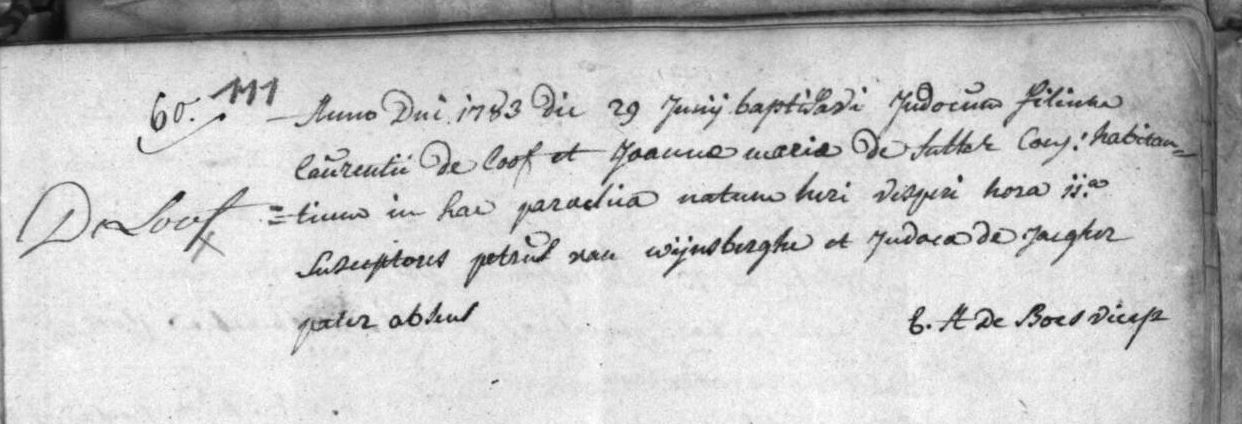 60. 111 Anno Dni 1783 die 29 Junij baptisavi Judocum filium
Laurentii de Loof et Joannæ mariæ De Sutter Conj: habitan=
De Loof =tium in hac parochia natum heri vesperi hora ii.a
Susceptores petrus van wijnsberghe et Judoca de Jaegher
pater absens
E. A De Boes vicep